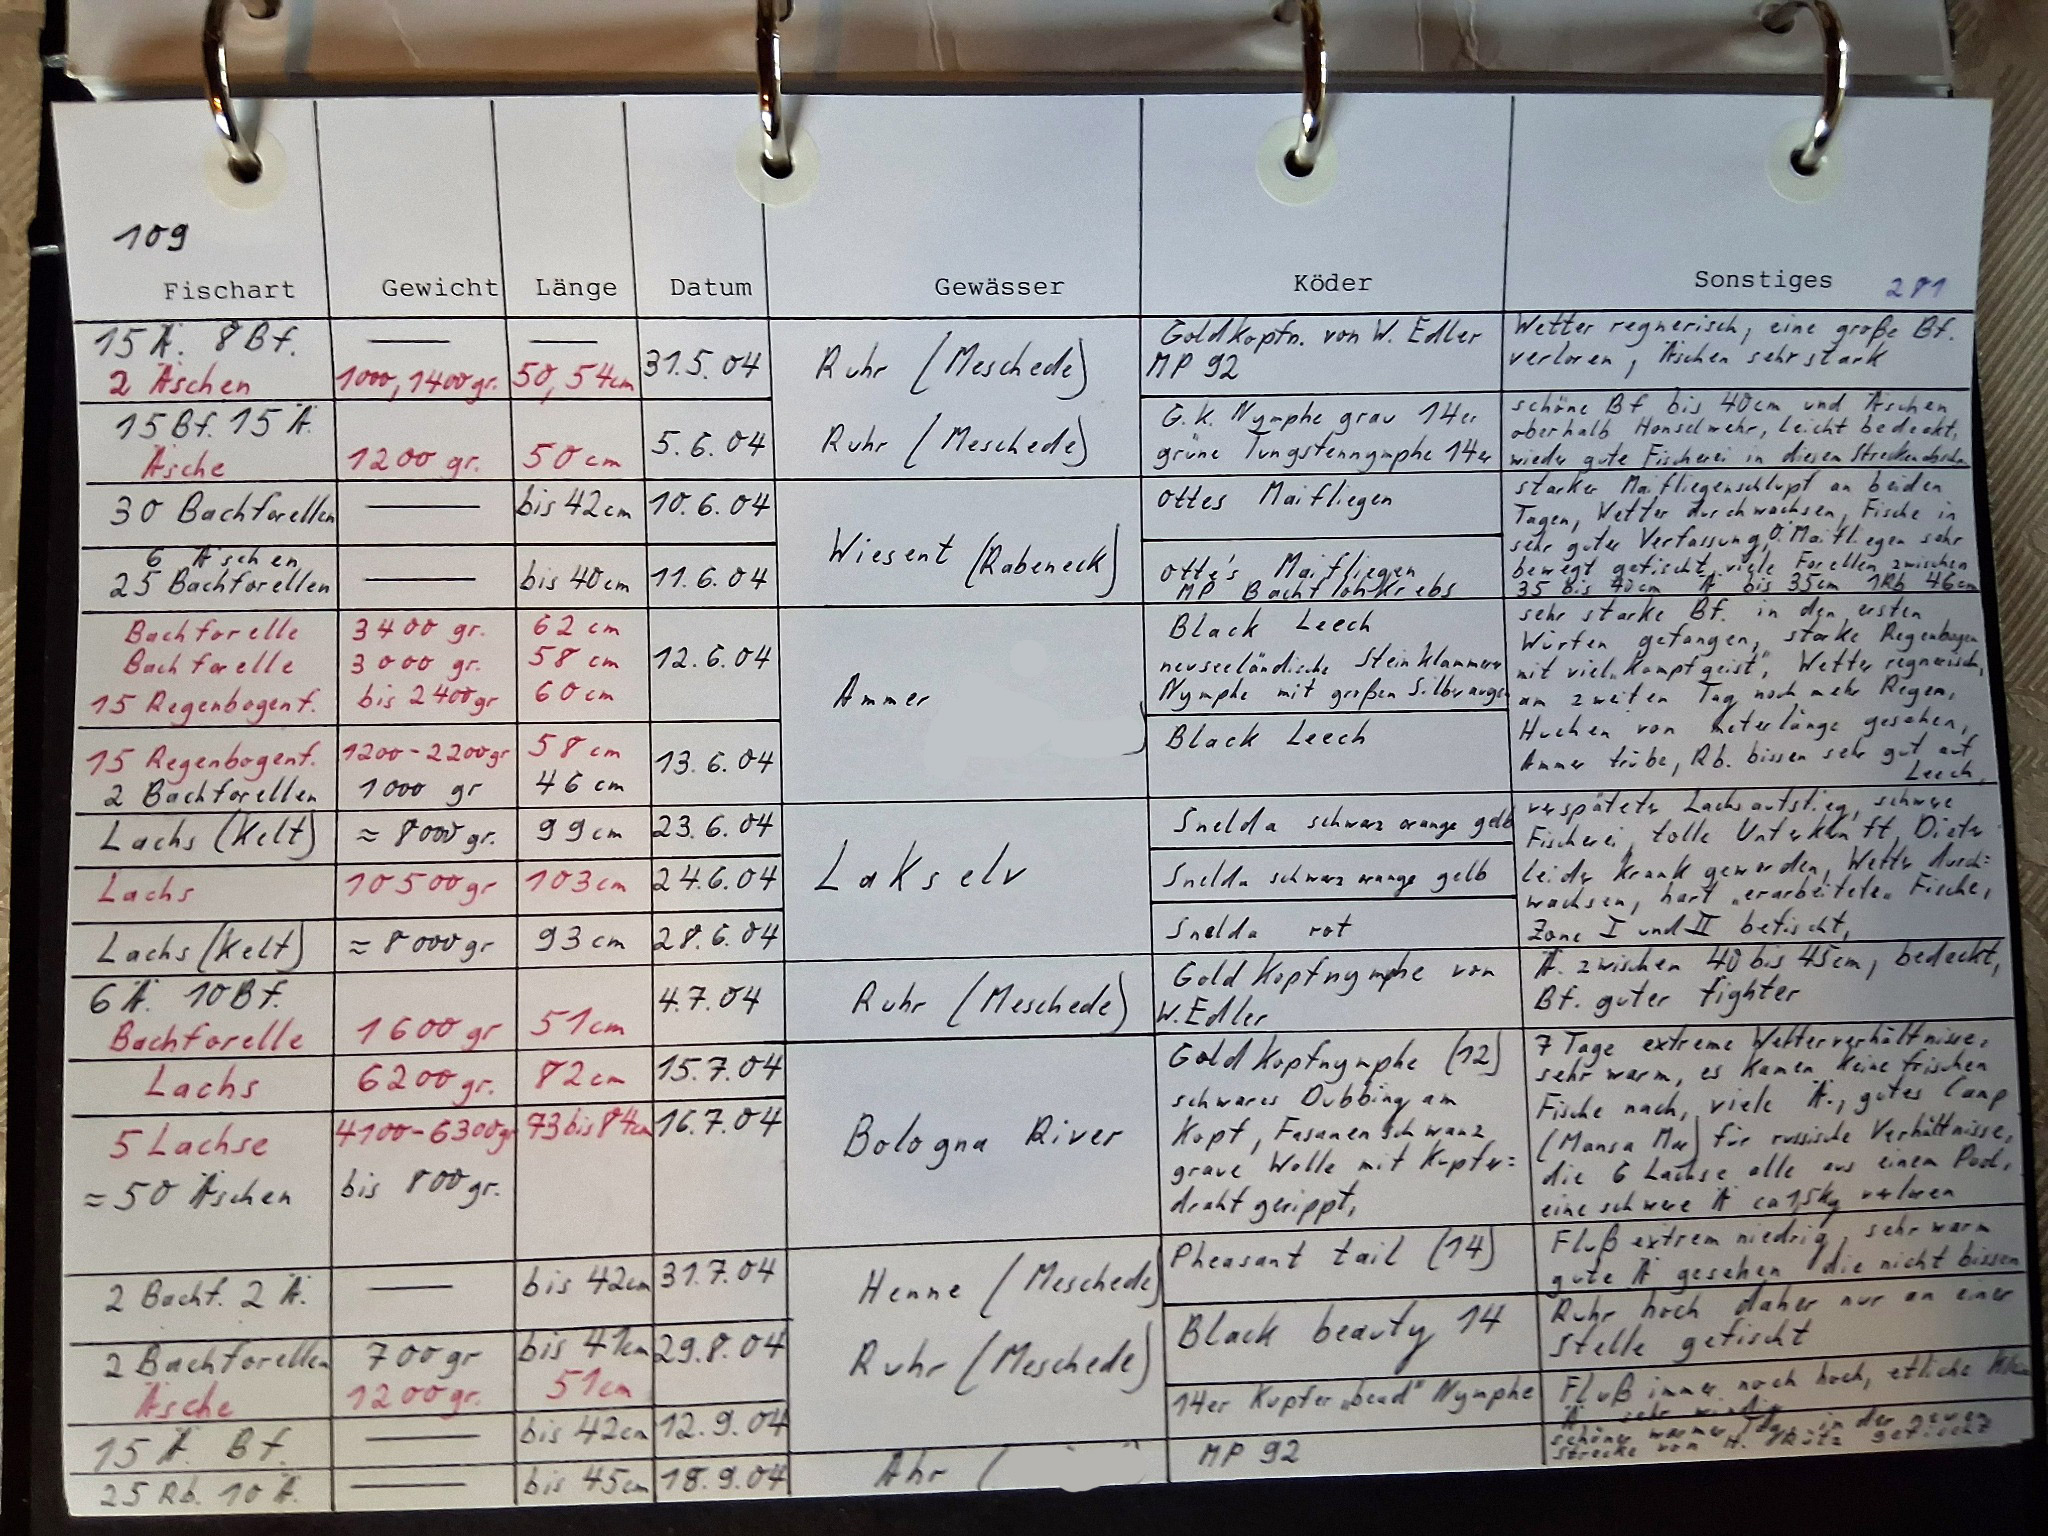 109
Fischart Gewicht Länge Datum Gewässer Köder Sonstiges 281
15 Ä. 8 Bf. — —
2 Äschen 1000, 1400 gr. 50, 54 cm
31.5.04
Ruhr (Meschede)
Goldkopfn. von W. Edler
MP 92
Wetter regnerisch, eine große Bf.
verloren, Äschen sehr stark
15 Bf. 15 Ä.
Äsche 1200 gr. 50 cm
5.6.04
Ruhr (Meschede)
G.K. Nymphe grau 14er
grüne Tungstennymphe 14er
schöne Bf bis 40cm und Äschen
oberhalb Honselwehr, leicht bedeckt,
wieder gute Fischerei in diesem
30 Bachforellen — bis 42cm 10.6.04
Wiesent (Rabeneck)
Ottes Maifliegen
6 Äschen
25 Bachforellen — bis 40cm 11.6.04
Otte's Maifliegen
MP Bachflohkrebs
starker Maifliegenschlupf an beiden
Tagen, Wetter durchwachsen, Fische in
sehr guter Verfassung, O. Maifliegen sehr
bewegt gefischt, viele Forellen zwischen
35 bis 40cm Ä bis 35cm 1Rb 46cm
Bachforelle 3400 gr. 62 cm
Bachforelle 3000 gr. 58 cm
15 Regenbogenf. bis 2400gr 60 cm
12.6.04
Ammer
Black Leech
neuseeländische Steinklammerer
Nymphe mit großen Silberaugen
15 Regenbogenf. 1200-2200gr 58 cm
2 Bachforellen 1000 gr 46 cm
13.6.04
Black Leech
sehr starke Bf. in den ersten
Würfen gefangen, starke Regenbogen
mit viel „Kampfgeist", Wetter regnerisch,
am zweiten Tag noch mehr Regen,
Huchen von Meterlänge gesehen,
Ammer trübe, Rb. bissen sehr gut auf
Leech,
Lachs (Kelt) ≈ 8000 gr. 99 cm 23.6.04
Lakselv
Snelda schwarz orange gelb
Lachs 10500gr 103cm 24.6.04
Snelda schwarz orange gelb
Lachs (Kelt) ≈ 8000gr 93 cm 28.6.04
Snelda rot
verspäteter Lachsaufstieg, schwere
Fischerei, tolle Unterkunft, Dieter
leider krank geworden, Wetter durch=
wachsen, hart „erarbeitete" Fische,
Zone I und II befischt,
6 Ä. 10 Bf.
Bachforelle 1600 gr 51 cm
4.7.04
Ruhr (Meschede)
Goldkopfnymphe von
W. Edler
Ä. zwischen 40 bis 45cm, bedeckt,
Bf. guter fighter
Lachs 6200 gr. 82 cm 15.7.04
5 Lachse 4100-6300gr 73 bis 84cm 16.7.04
≈ 50 Äschen bis 800gr.
Bologna River
Goldkopfnymphe (12)
schwares Dubbing am
Kopf, Fasanenschwanz
graue Wolle mit Kupfer=
draht gerippt,
7 Tage extreme Wetterverhältnisse,
sehr warm, es kamen keine frischen
Fische nach, viele Ä., gutes Camp
für russische Verhältnisse,
die 6 Lachse alle aus einem Pool,
eine schwere Ä ca 1,5kg verloren
2 Bachf. 2 Ä. — bis 42cm 31.7.04
Henne (Meschede)
Pheasant tail (14)
Fluß extrem niedrig, sehr warm
gute Ä gesehen die nicht bissen
2 Bachforellen 700gr bis 41cm
Äsche 1200gr. 51cm
29.8.04
Ruhr (Meschede)
Black beauty 14
Ruhr hoch daher nur an einer
Stelle gefischt
15 Ä. Bf. — bis 42cm 12.9.04
14er Kupfer „bead" Nymphe
Fluß immer noch hoch, etliche
Ä. sehr
25 Rb. 10 Ä. — bis 45cm 18.9.04
Ahr (
MP 92
schöner warmer Tag, in der neuen
Strecke von H. gefischt